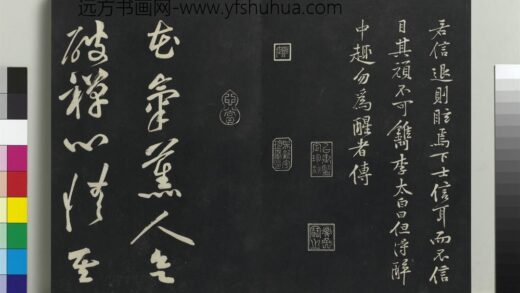 远方书画网-www.yfshuhua.com
若信退則眩焉下士信耳而不信
目其頑不可鐫李太白曰但得醉
中趣勿為醒者傳
花氣薰人欲
破禪心情其